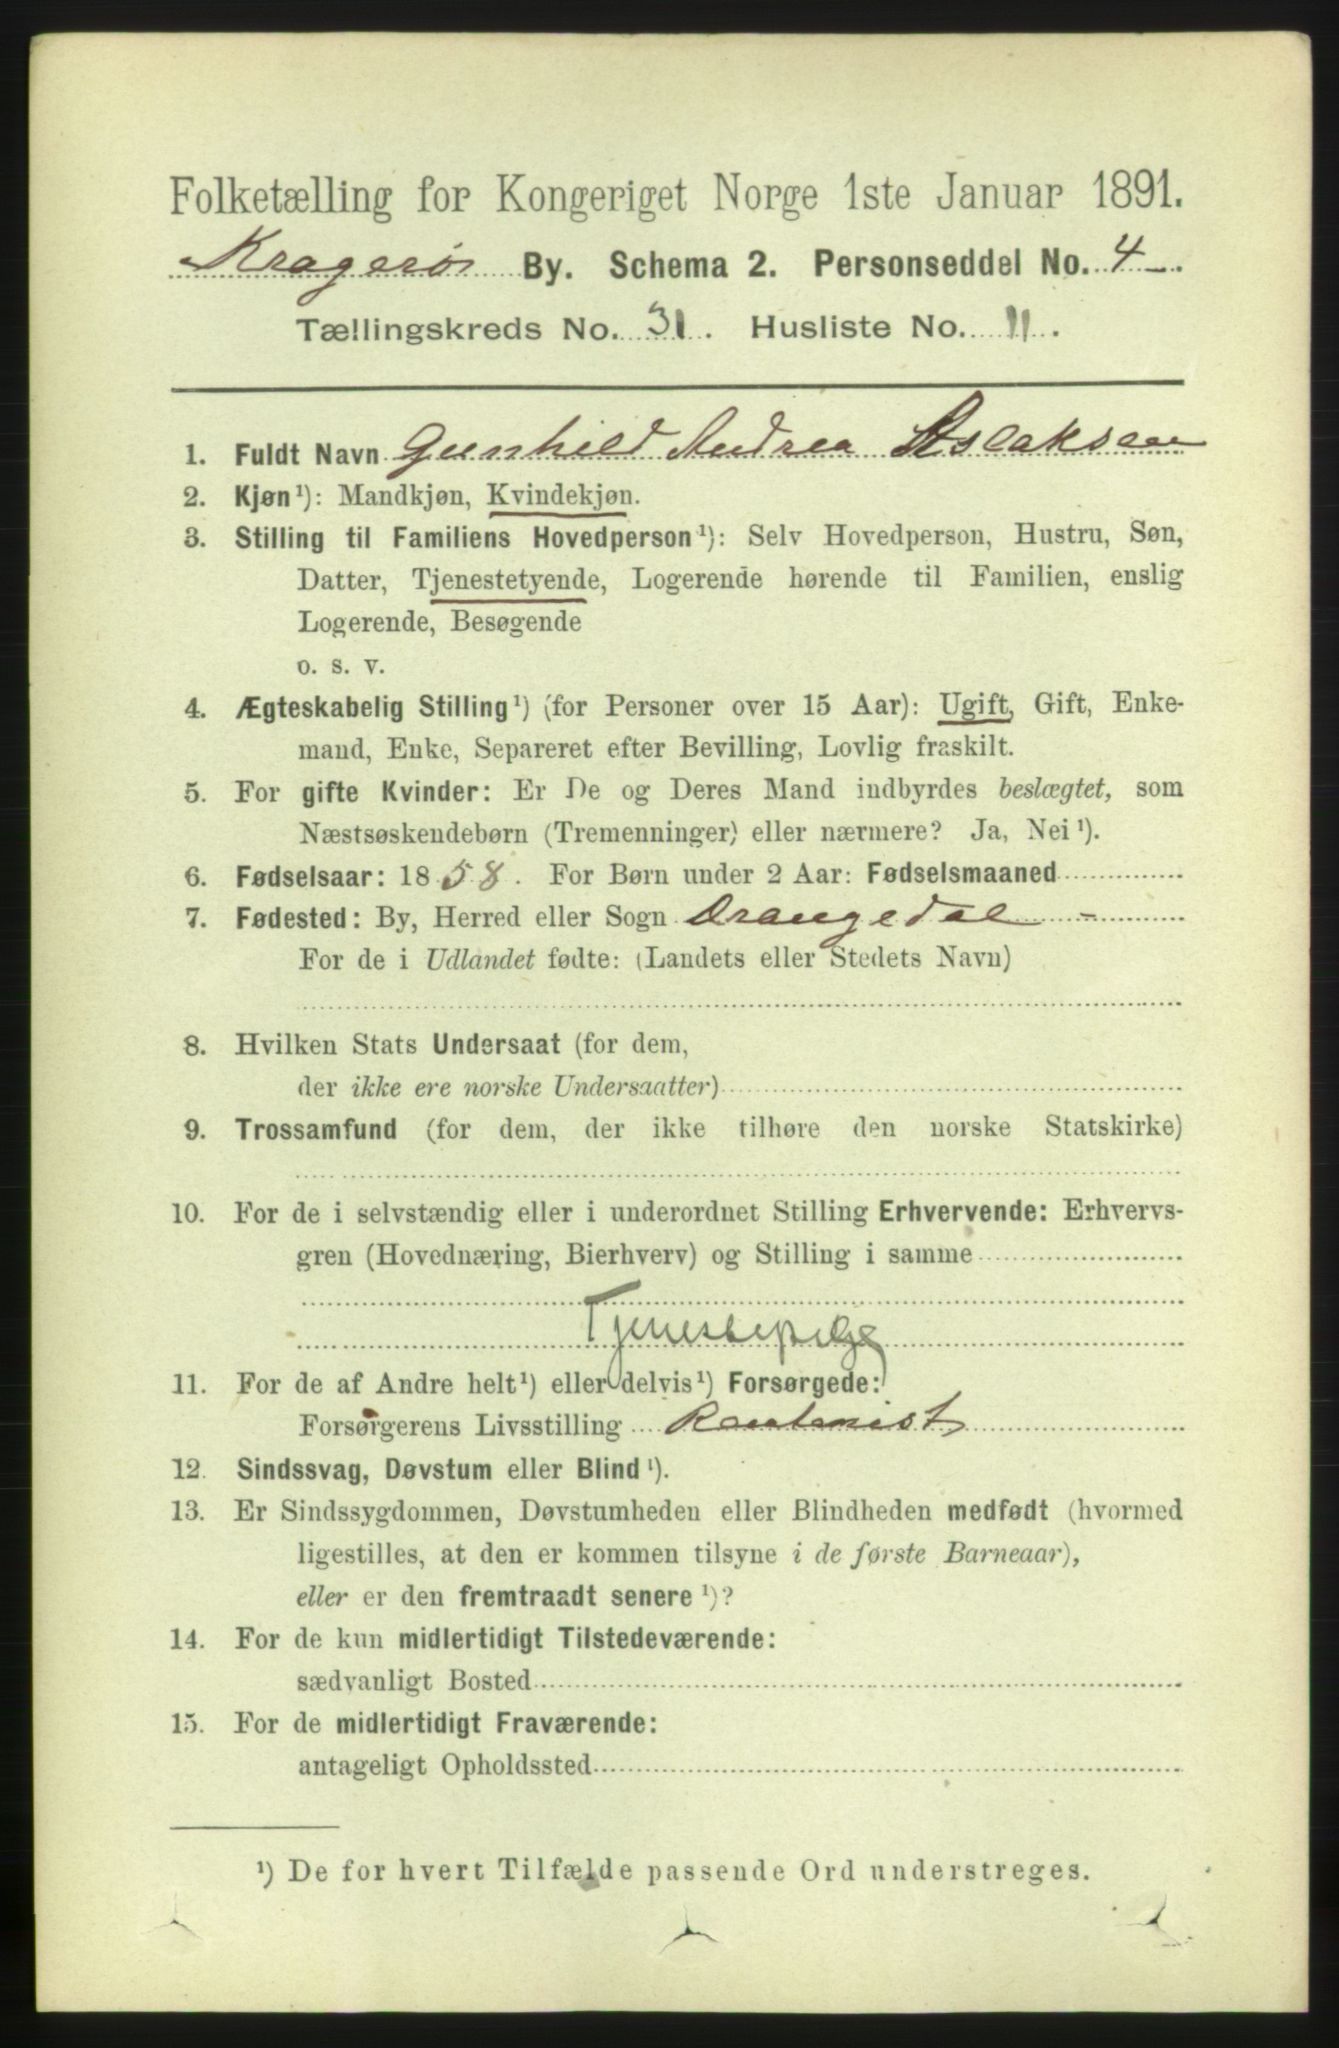 Folketælling for Kongeriget Norge 1ste Januar 1891.
Kragerø By. Schema 2. Personseddel No. 4
Tællingskreds No. 31. Husliste No. 11.
1. Fuldt Navn Gunhild Andrea Aslaksen
2. Kjøn¹): Mandkjøn, Kvindekjøn.
3. Stilling til Familiens Hovedperson¹): Selv Hovedperson, Hustru, Søn,
Datter, Tjenestetyende, Logerende hørende til Familien, enslig
Logerende, Besøgende
o. s. v.
4. Ægteskabelig Stilling¹) (for Personer over 15 Aar): Ugift, Gift, Enke-
mand, Enke, Separeret efter Bevilling, Lovlig fraskilt.
5. For gifte Kvinder: Er De og Deres Mand indbyrdes beslægtet, som
Næstsøskendebørn (Tremenninger) eller nærmere? Ja, Nei¹).
6. Fødselsaar: 1858. For Børn under 2 Aar: Fødselsmaaned
7. Fødested: By, Herred eller Sogn Drangedal -
For de i Udlandet fødte: (Landets eller Stedets Navn)
8. Hvilken Stats Undersaat (for dem,
der ikke ere norske Undersaatter)
9. Trossamfund (for dem, der ikke tilhøre den norske Statskirke)
10. For de i selvstændig eller i underordnet Stilling Erhvervende: Erhvervs-
gren (Hovednæring, Bierhverv) og Stilling i samme
Tjenestepige
11. For de af Andre helt¹) eller delvis¹) Forsørgede:
Forsørgerens Livsstilling Rentenist
12. Sindssvag, Døvstum eller Blind¹).
13. Er Sindssygdommen, Døvstumheden eller Blindheden medfødt (hvormed
ligestilles, at den er kommen tilsyne i de første Barneaar),
eller er den fremtraadt senere¹)?
14. For de kun midlertidigt Tilstedeværende:
sædvanligt Bosted
15. For de midlertidigt Fraværende:
antageligt Opholdssted
¹) De for hvert Tilfælde passende Ord understreges.